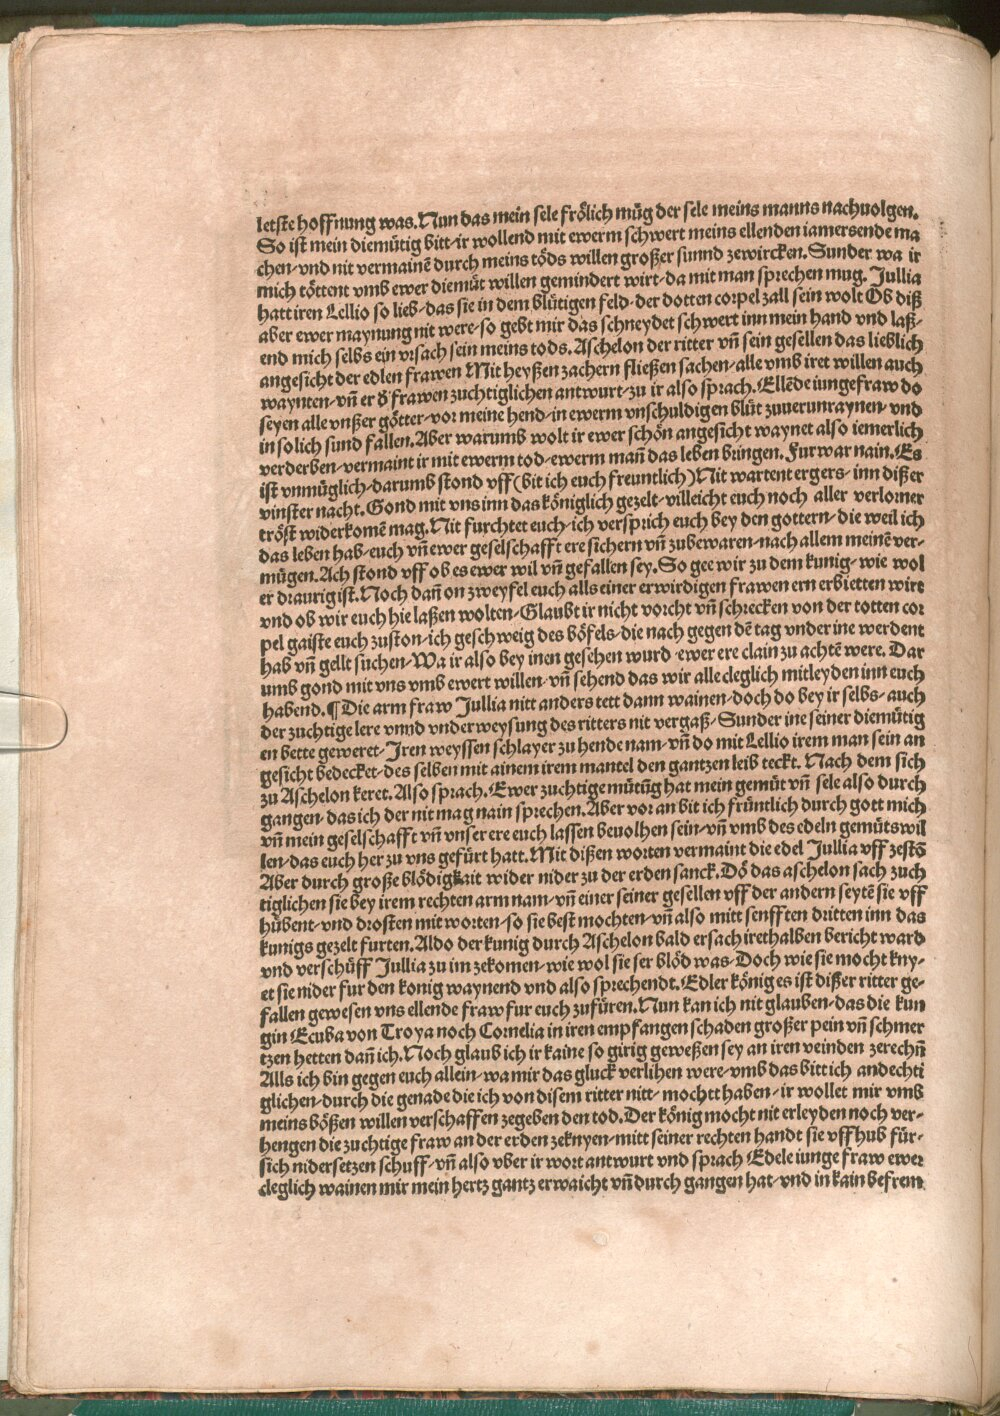 letste hoffnung was. Nun das mein sele frölich müg der sele meins manns nachuolgen.
So ist mein diemütig bitt-ir wollend mit ewerm schwert meins ellenden iamersende ma
chen-vnd nit vermainē durch meins töds willen großer sunnd zewircken. Sunder wa ir
mich töttent vmb ewer diemüt willen gemindert wirt-da mit man sprechen mug. Jullia
hatt iren Lellio so lieb-das sie in dem blütigen feld-der dotten corpel zall sein wolt Ob diß
aber ewer maynung nit were-so gebt mir das schneydet schwert inn mein hand vnd laß-
end mich selbs ein vrsach sein meins tods. Aschelon der ritter vn̄ sein gesellen das lieblich
angesicht der edlen frawen Mit heyßen zachern fließen sachen-alle vmb iret willen auch
waynten-vn̄ er d̕ frawen zuchtiglichen antwurt-zu ir also sprach. Ellēde iungefraw do
seyen alle vnßer götter-vor meine hend-in ewerm vnschuldigen blüt zuuerunraynen-vnd
in solich sund fallen. Aber warumb wolt ir ewer schön angesicht waynet also iemerlich
verderben-vermaint ir mit ewerm tod-ewerm man̄ das leben bringen. Fur war nain. Es
ist vnmüglich-darumb stond vff (bit ich euch freuntlich) Nit wartent ergers-inn dißer
vinster nacht. Gond mit vns inn das königlich gezelt-villeicht euch noch aller verlorner
tröst widerkomē mag. Nit furchtet euch-ich versprich euch bey den gottern-die weil ich
das leben hab-euch vn̄ ewer geselschafft ere sichern vn̄ zubewaren-nach allem meinē ver-
mügen. Ach stond vff ob es ewer wil vn̄ gefallen sey. So gee wir zu dem kunig-wie wol
er draurig ist. Noch dan̄ on zweyfel euch alls einer erwirdigen frawen ern erbietten wirt
vnd ob wir euch hie laßen wolten-Glaubt ir nicht vorcht vn̄ schrecken von der totten cor
pel gaiste euch zuston-ich geschweig des böfels-die nach gegen dē tag vnder ine werdent
hab vn̄ gellt suchen-Wa ir also bey inen gesehen wurd-ewer ere clain zu achtē were. Dar
umb gond mit vns vmb ewert willen-vn̄ sehend das wir alle cleglich mitleyden inn euch
habend. ¶ Die arm fraw Jullia nitt anders tett dann wainen-doch do bey ir selbs-auch
der zuchtige lere vnnd vnderweysung des ritters nit vergaß-Sunder ine seiner diemütig
en bette geweret-Iren weyssen schlayer zu hende nam-vn̄ do mit Lellio irem man sein an
gesicht bedecket-des selben mit ainem irem mantel den gantzen leib teckt. Nach dem sich
zu Aschelon keret. Also sprach. Ewer zuchtige mütūg hat mein gemüt vn̄ sele also durch
gangen-das ich der nit mag nain sprechen. Aber vor an bit ich früntlich durch gott mich
vn̄ mein geselschafft vn̄ vnser ere euch lassen beuolhen sein-vn̄ vmb des edeln gemüts wil
len-das euch her zu vns gefürt hatt. Mit dißen worten vermaint die edel Jullia vff zestō
Aber durch große blödigkait wider nider zu der erden sanck. Dö das aschelon sach zuch
tiglichen sie bey irem rechten arm nam-vn̄ einer seiner gesellen vff der andern seytē sie vff
hübent-vnd drosten mit worten-so sie best mochten-vn̄ also mitt senfften dritten inn das
kunigs gezelt furten. Aldo der kunig durch Aschelon bald ersach irethalben bericht ward
vnd verschüff Jullia zu im zekomen-wie wol sie ser blöd was-Doch wie sie mocht kny-
et sie nider fur den konig waynend vnd also sprechendt. Edler könig es ist dißer ritter ge-
fallen gewesen vns ellende fraw fur euch zufüren. Nun kan ich nit glauben-das die kun
gin Ecuba von Troya noch Cornelia in iren empfangen schaden großer pein vn̄ schmer
tzen hetten dan̄ ich. Noch glaub ich ir kaine so girig geweßen sey an iren veinden zerechn̄
Alls ich bin gegen euch allein-wa mir das gluck verlihen were-vmb das bitt ich andechti
glichen-durch die genade die ich von disem ritter nitt-mochtt haben-ir wollet mir vmb
meins bößen willen verschaffen zegeben den tod. Der könig mocht nit erleyden noch ver-
hengen die zuchtige fraw an der erden zeknyen-mitt seiner rechten handt sie vffhub für-
sich nidersetzen schuff-vn̄ also vber ir wort antwurt vnd sprach Edele iunge fraw ewer
cleglich wainen mir mein hertz gantz erwaicht vn̄ durch gangen hat-vnd in kain befrem